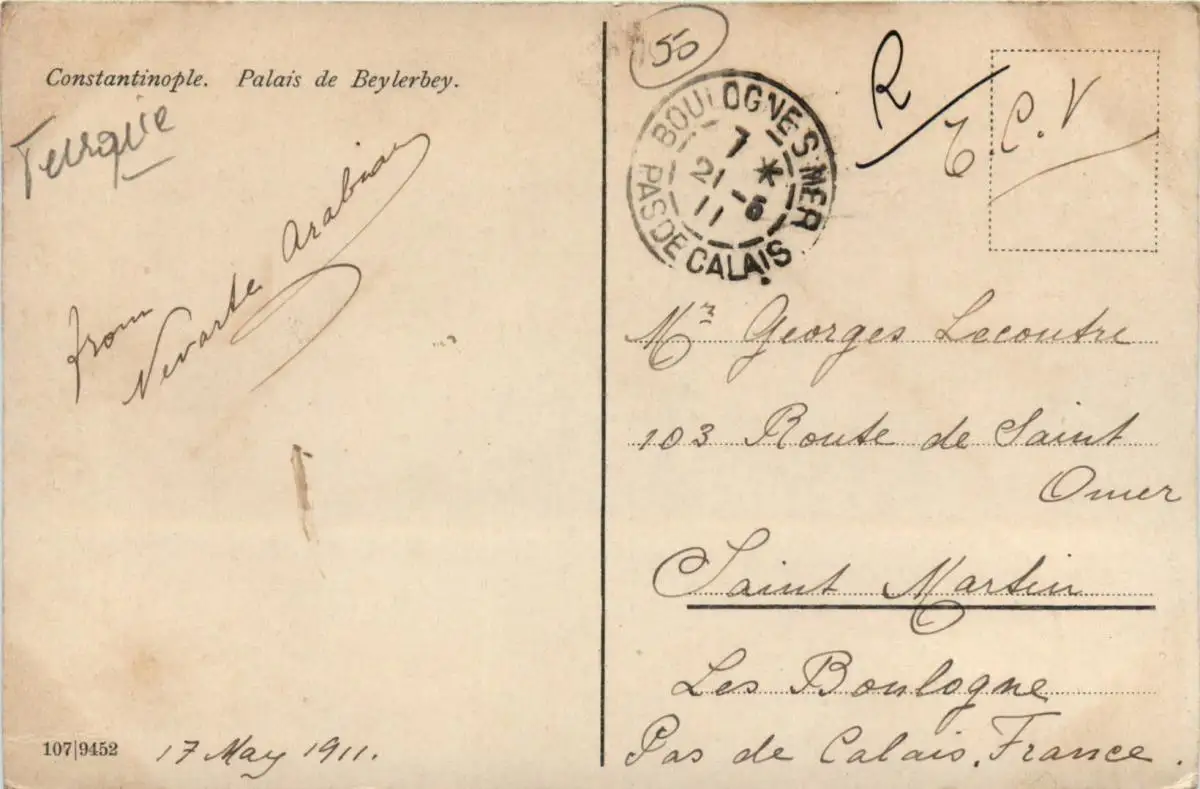 Constantinople. Palais de Beylerbey.
Turquie
from
Nevarte Arabian
107|9452
17 May 1911.
55
BOULOGNE-S-MER
7 *
21 -5
11
PAS DE CALAIS
R
T.C.V
Mr Georges Lecoutre
103 Route de Saint
Omer
Saint Martin
Les Boulogne
Pas de Calais, France.